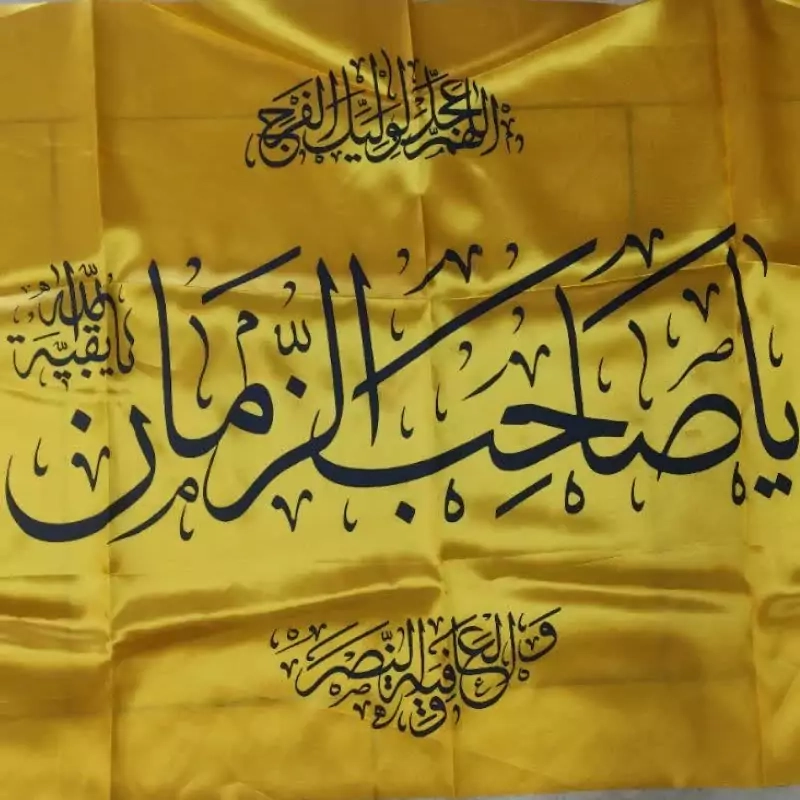 اللهم عجل لوليك الفرج
يا صاحب الزمان
يا بقية الله
والعافية والنصر